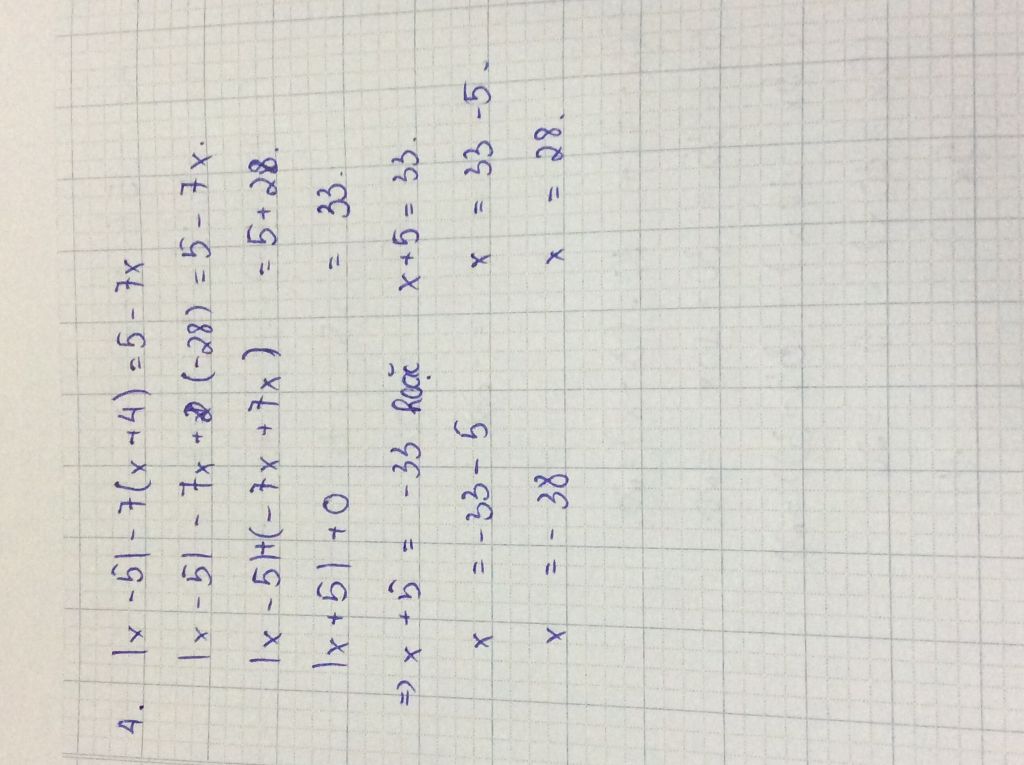 4. |x - 5| - 7(x + 4) = 5 - 7x
|x - 5| - 7x + (-28) = 5 - 7x.
|x - 5| + (-7x + 7x) = 5 + 28.
|x + 5| + 0 = 33.
=> x + 5 = -33 hoặc x + 5 = 33.
x = -33 - 5 x = 33 - 5.
x = -38 x = 28.